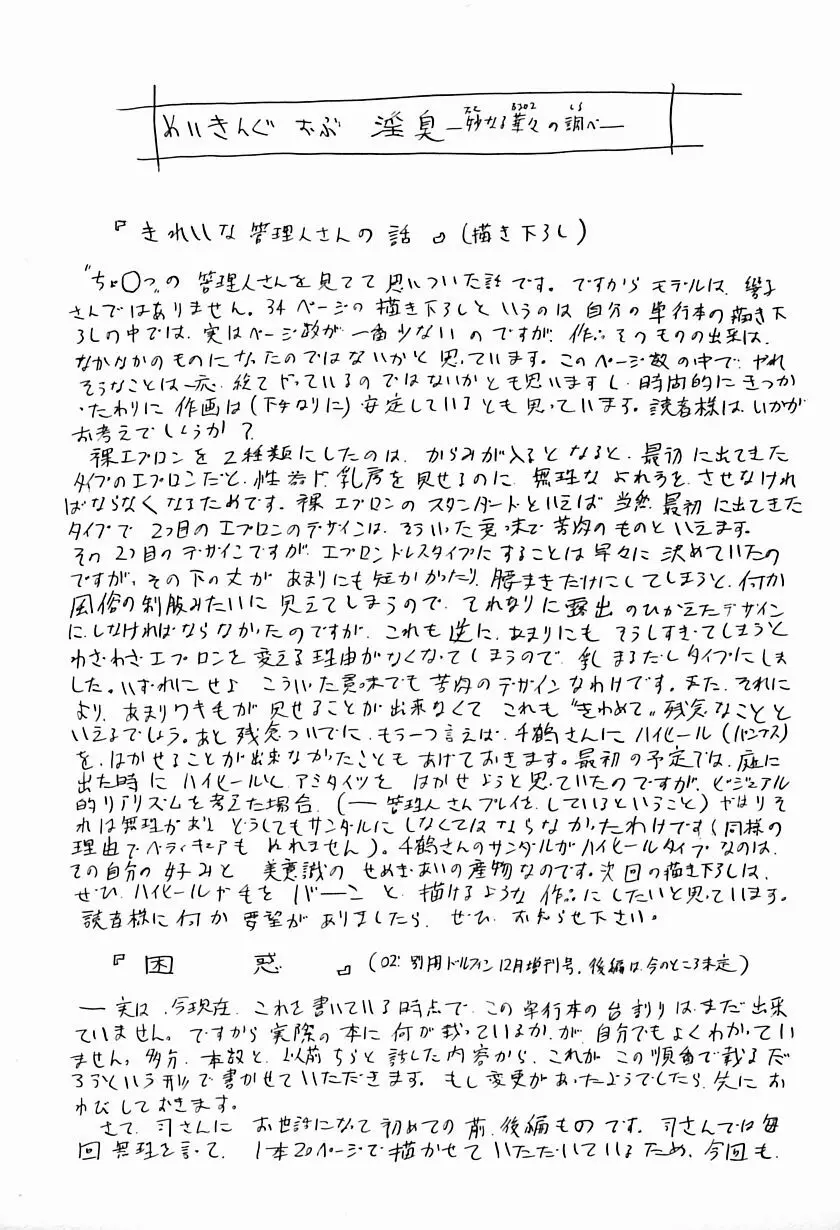 めいきんぐ おぶ 淫臭―妙なる華々の調べ―
『きれいな管理人さんの話』(描き下ろし)
"ちょ○っ"の管理人さんを見てて思いついた話です。ですからモデルは、響子
さんではありません。34ページの描き下ろしというのは自分の単行本の描き下
ろしの中では、実はページ数が一番少ないのですが、作品そのものの出来は、
なかなかのものになったのではないかと思っています。このページ数の中で、やれ
そうなことは一応、総てやっているのではないかとも思いますし、時間的にきつか
ったわりに作画は(下手なりに)安定しているとも思っています。読者様は、いかが
お考えでしょうか?
裸エプロンを2種類にしたのは、からみが入るとなると、最初に出てきた
タイプのエプロンだと、性器や、乳房を見せるのに、無理なよれ方を、させなけれ
ばならなくなるためです。裸エプロンのスタンダードといえば当然、最初に出てきた
タイプで2つ目のエプロンのデザインは、そういった意味で苦肉のものといえます。
その2つ目のデザインですが、エプロンドレスタイプにすることは早々に決めていたの
ですが、その下の丈があまりにも短かかったり、腰まきだけにしてしまうと、何か
風俗の制服みたいに見えてしまうので、それなりに露出のひかえたデザイン
に、しなければならなかったのですが、これも逆に、あまりにもそうしすぎてしまうと
わざわざエプロンを変える理由がなくなってしまうので、乳まるだしタイプにしま
した。いずれにせよ こういった意味でも苦肉のデザインなわけです。また、それに
より、あまりワキ毛が見せることが出来なくて これも"きわめて"残念なことと
いえるでしょう。あと残念ついでに、もう一つ言えば、千鶴さんにハイヒール(パンプス)
を、はかせることが出来なかったこともあげておきます。最初の予定では、庭に
出た時にハイヒールと、アミタイツを はかせようと思っていたのですが、ビジュアル
的リアリズムを考えた場合、(― 管理人さんプレイを、しているということ)やはりそ
れは無理があり どうしてもサンダルにしなくてはならなかったわけです(同様の
理由でペディキュアもぬれません)。千鶴さんのサンダルがハイヒールタイプなのは、
その自分の好みと 美意識のせめぎあいの産物なのです。次回の描き下ろしは、
ぜひ、ハイヒールや毛を バ―ンと、描けるような作品にしたいと思っています。
読者様に何か要望がありましたら、ぜひ、お知らせ下さい。
『困惑』(02' 別冊ドルフィン12月増刊号、後編は今のところ未定)
― 実は、今現在、これを書いている時点で、この単行本の台割りは、まだ出来
ていません。ですから実際の本に何が載っているか、が、自分でもよくわかってい
ません。多分、本数と、以前ちらと話した内容から、これが この順番で載るだ
ろうという形で書かせていただきます。もし変更があったようでしたら、先にお
わびしておきます。
さて、司さんに お世話になって初めての前、後編ものです。司さんでは毎
回無理を言って、1本20ページで描かせて いただいているため、今回も、